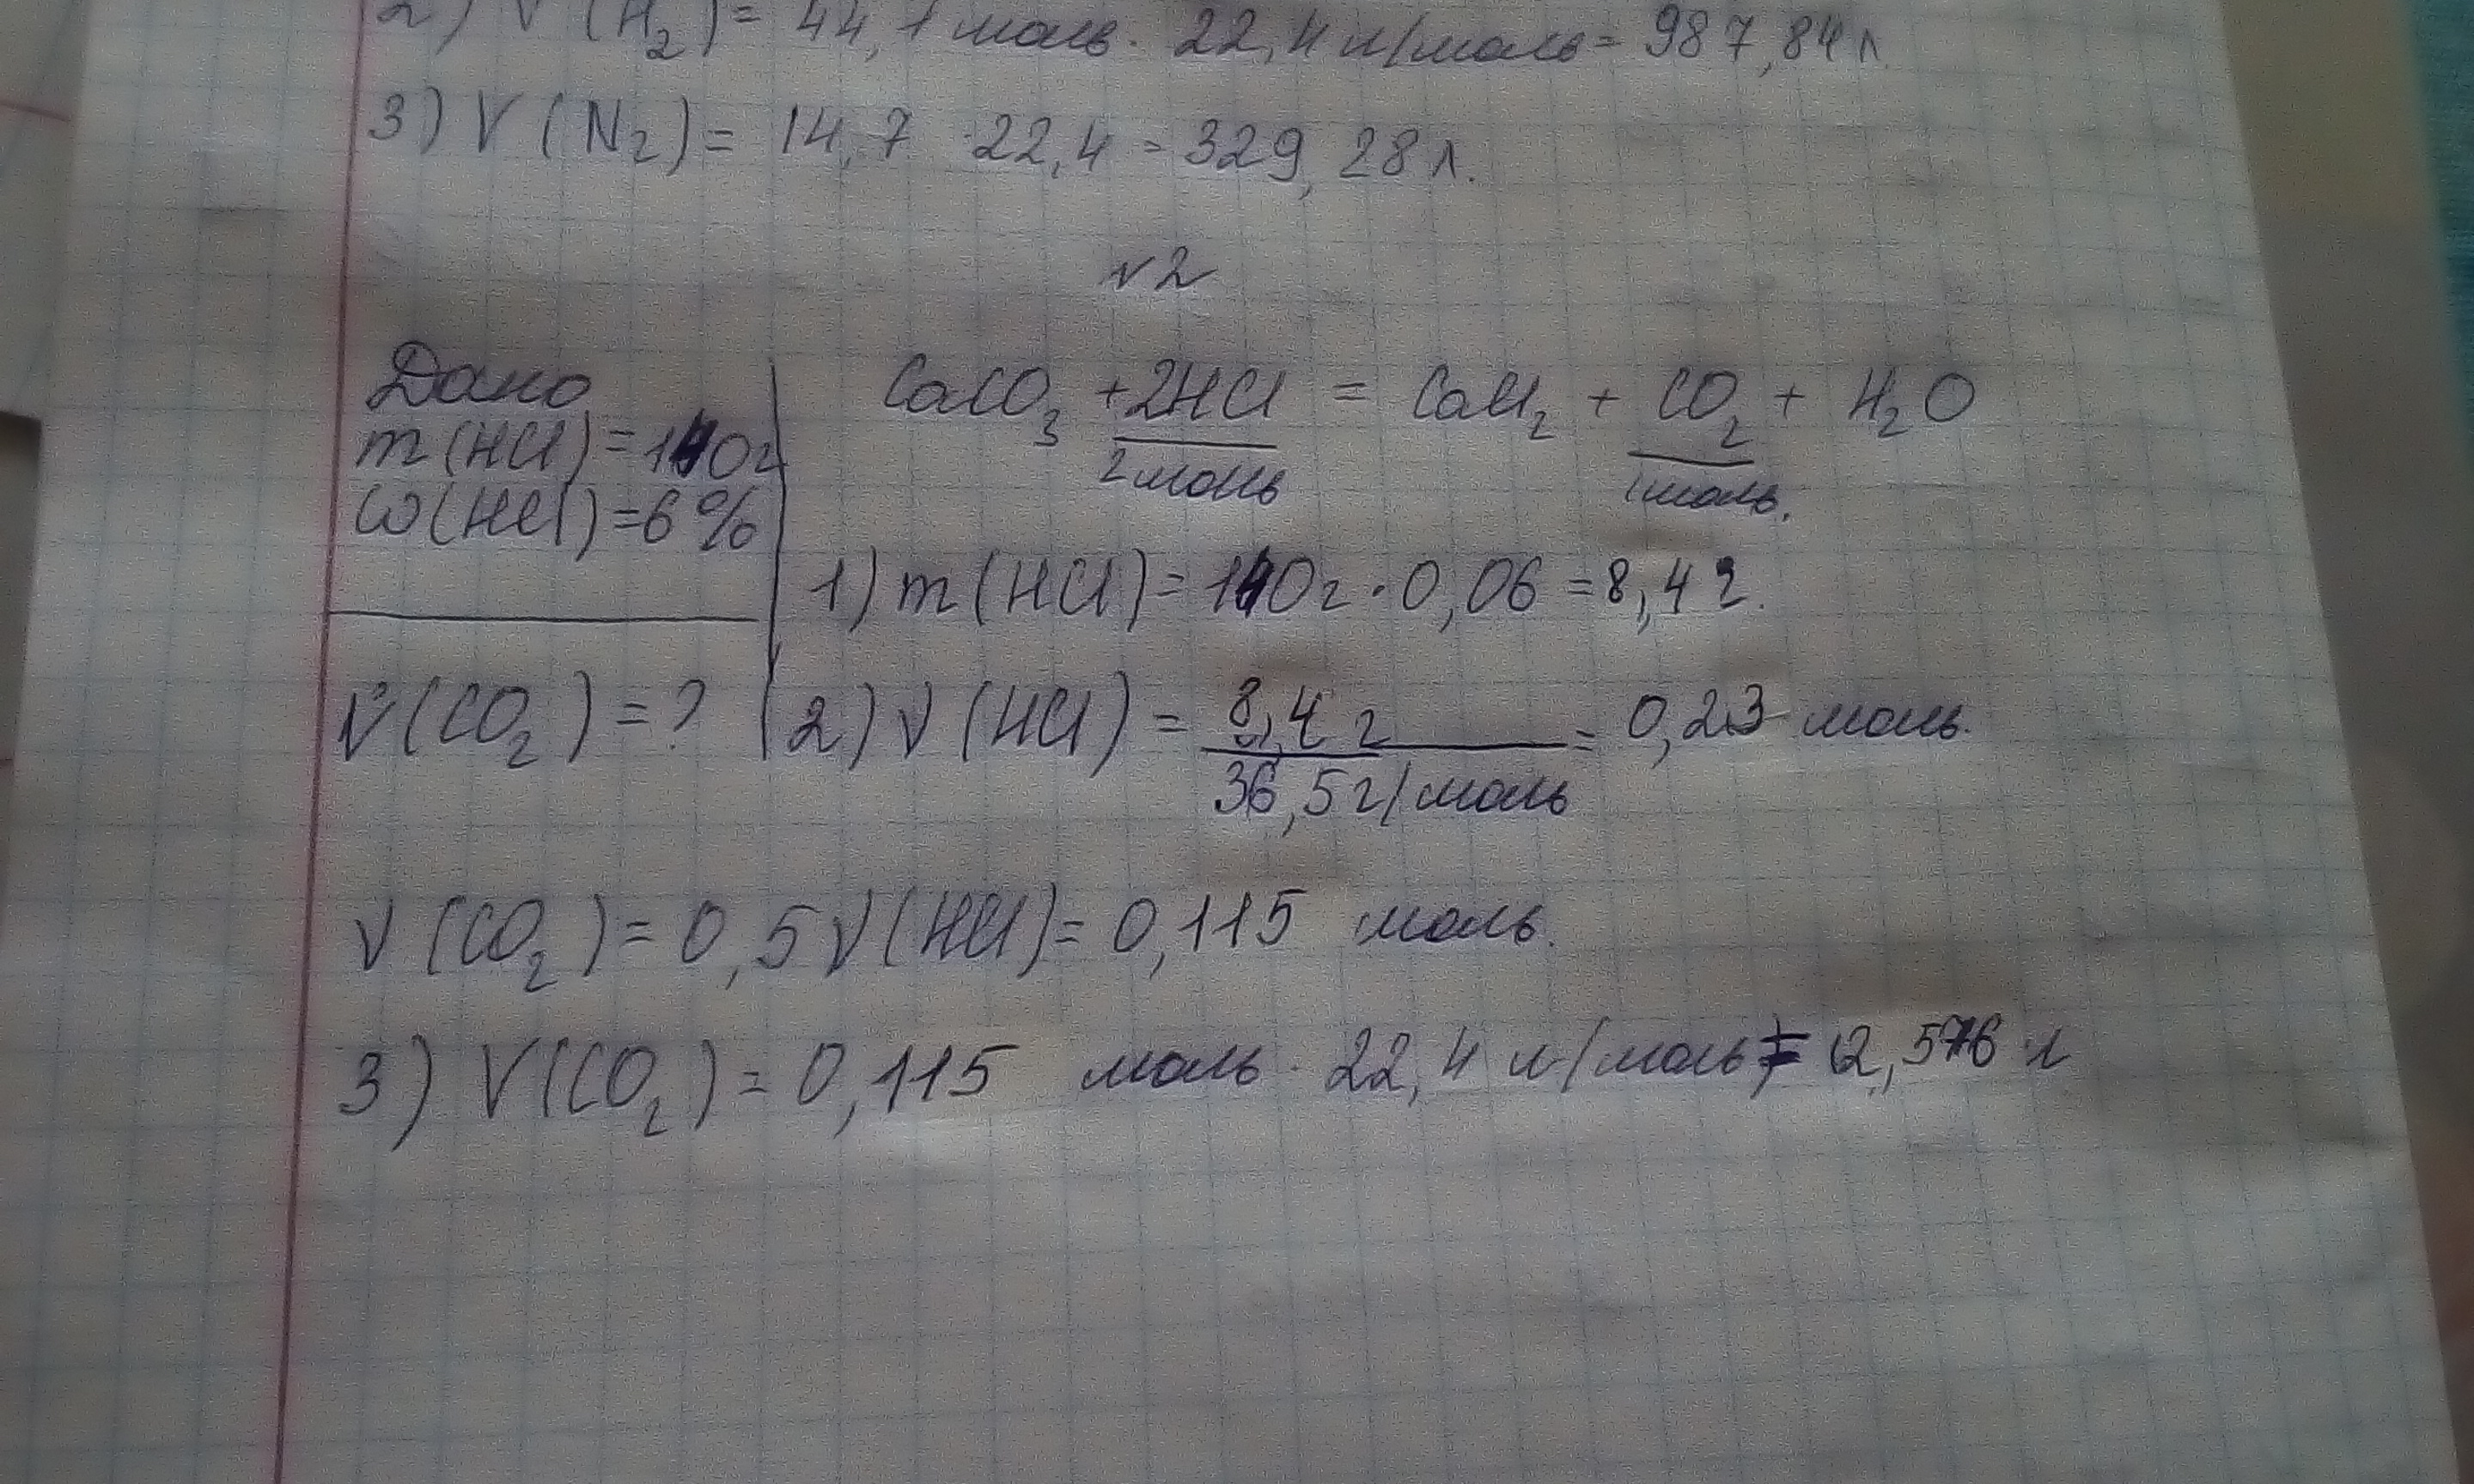 2) V (H₂) = 44,1 моль · 22,4 л/моль = 987,84 л
3) V (N₂) = 14,7 · 22,4 = 329,28 л.
№2
Дано
m(HCl) = 140 г
ω(HCl) = 6%
V(CO₂) = ?
CaCO₃ + 2HCl = CaCl₂ + CO₂ + H₂O
2 моль 1 моль.
1) m(HCl) = 140 г · 0,06 = 8,4 г.
2) ν(HCl) = 8,4 г / 36,5 г/моль = 0,23 моль.
ν(CO₂) = 0,5 ν(HCl) = 0,115 моль.
3) V(CO₂) = 0,115 моль · 22,4 л/моль = 2,576 л